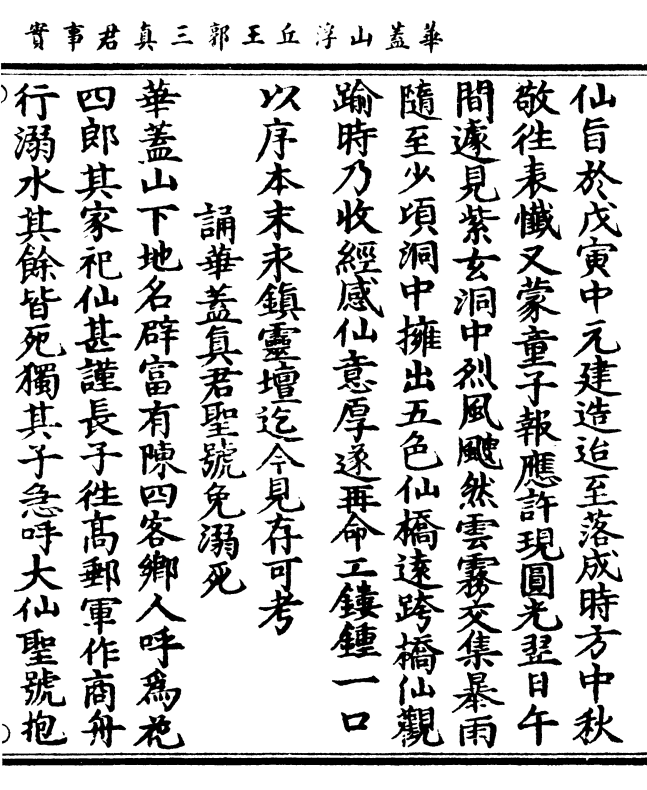 華蓋山浮丘王郭三真君事實
仙旨於戊寅中元建造迨至落成時方中秋
敬徃表懺又蒙童子報應許現圓光翌日午
間遽見紫玄洞中烈風颼然雲霧交集暴雨
隨至少頃洞中擁出五色仙橋遠跨橋仙觀
踰時乃收經感仙意厚遂再命工鏤鍾一口
以序本末永鎮靈壇迄今見存可考
誦華蓋真君聖號免溺死
華蓋山下地名辟富有陳四客鄉人呼爲花
四郎其家祀仙甚謹長子徃高郵軍作商舟
行溺水其餘皆死獨其子急呼大仙聖號抱